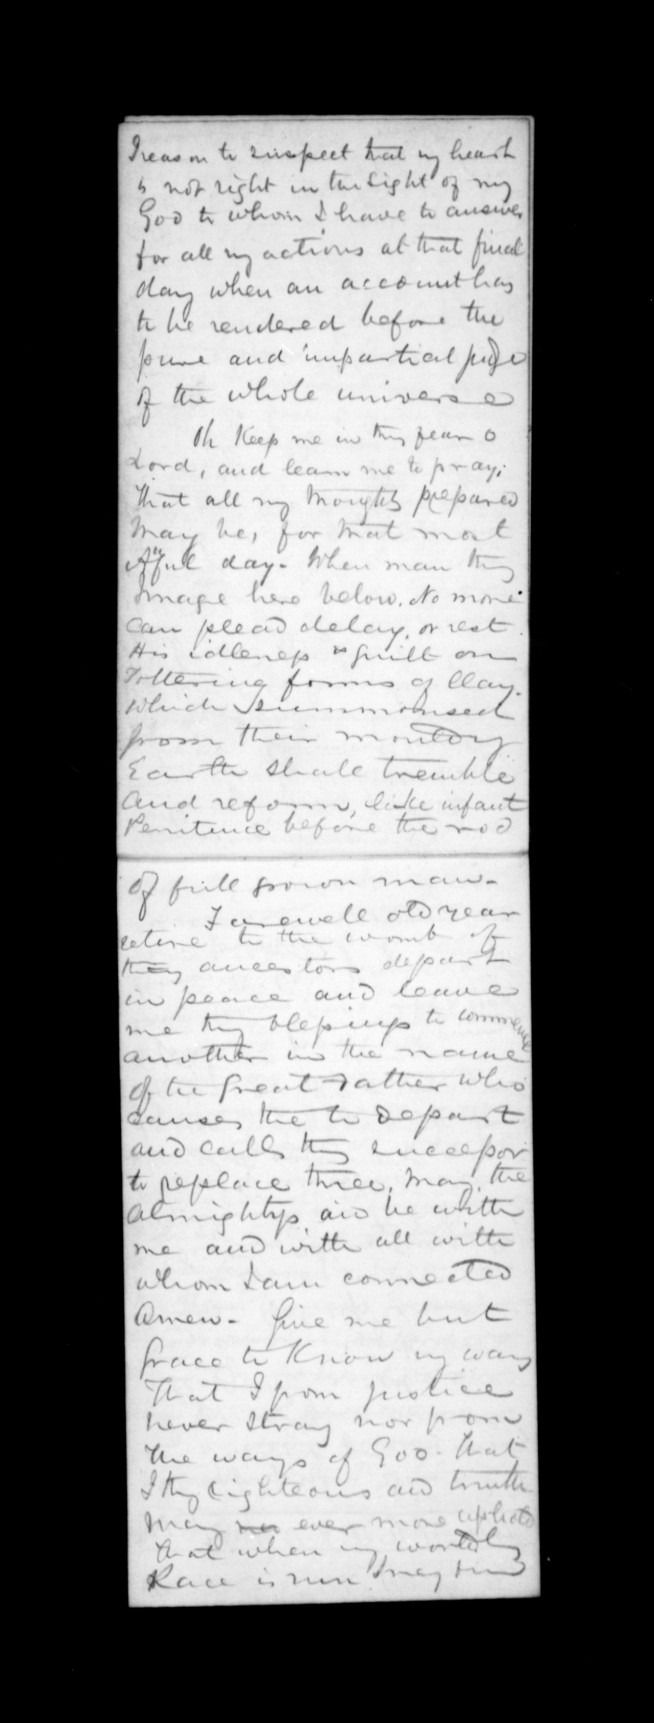 reason to suspect that my heart
is not right in the sight of my
God to whom I have to answer
for all my actions at that final
day when an account has
to be rendered before the
pure and impartial judge
of the whole universe
Oh Keep me in thy fear O
Lord, and learn me to pray;
That all my thoughts prepared
May be, for that most
Awful day. When man thy
Image here below. No more
can plead delay, or rest
His idleness & guilt on
Tottering forms of Clay.
Which summonsed
from their mouldy
Earth shall tremble
And reform, like infant
Penitence before the rod
Of full grown man.
Farewell old year
retire to the womb of
thy ancestors depart
in peace and leave
me thy blessings to commence
another in the name
of the Great Father who
causes the to depart
and calls thy successor
to replace thee, may the
Almightys aid be with
me and with all with
whom I am connected
Amen. Give me but
Grace to Know my ways
That I from justice
never stray nor from
The ways of God. That
I thy righteous aid truth
May ever more uphold
That when my worldly
Race is run I may